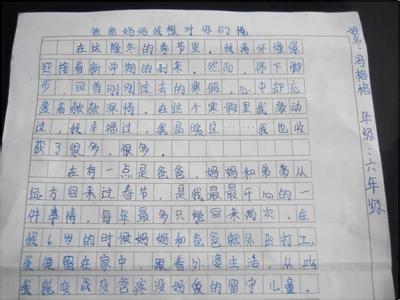 爸爸妈妈我想对你们说
在这隆冬的季节里，我满怀憧憬
迎接着新学期的到来。然而，停下脚
步，回首刚刚过去的寒假，心中却充
盈着款款深情。在这个寒假里我感动
过，我幸福过，我品味过……我也收
获了很多，很多。
在有一点是爸爸，妈妈和弟弟从
远方回来过春节，是我最最开心的一
件事情，每年最多只能回来两次，在
我6岁的时候妈妈和爸爸就外出打工
我便留在家中，跟着外婆生活，从此
我就变成没爸疼没妈爱的留守儿童。
姓名：冯格格 年级：六年级